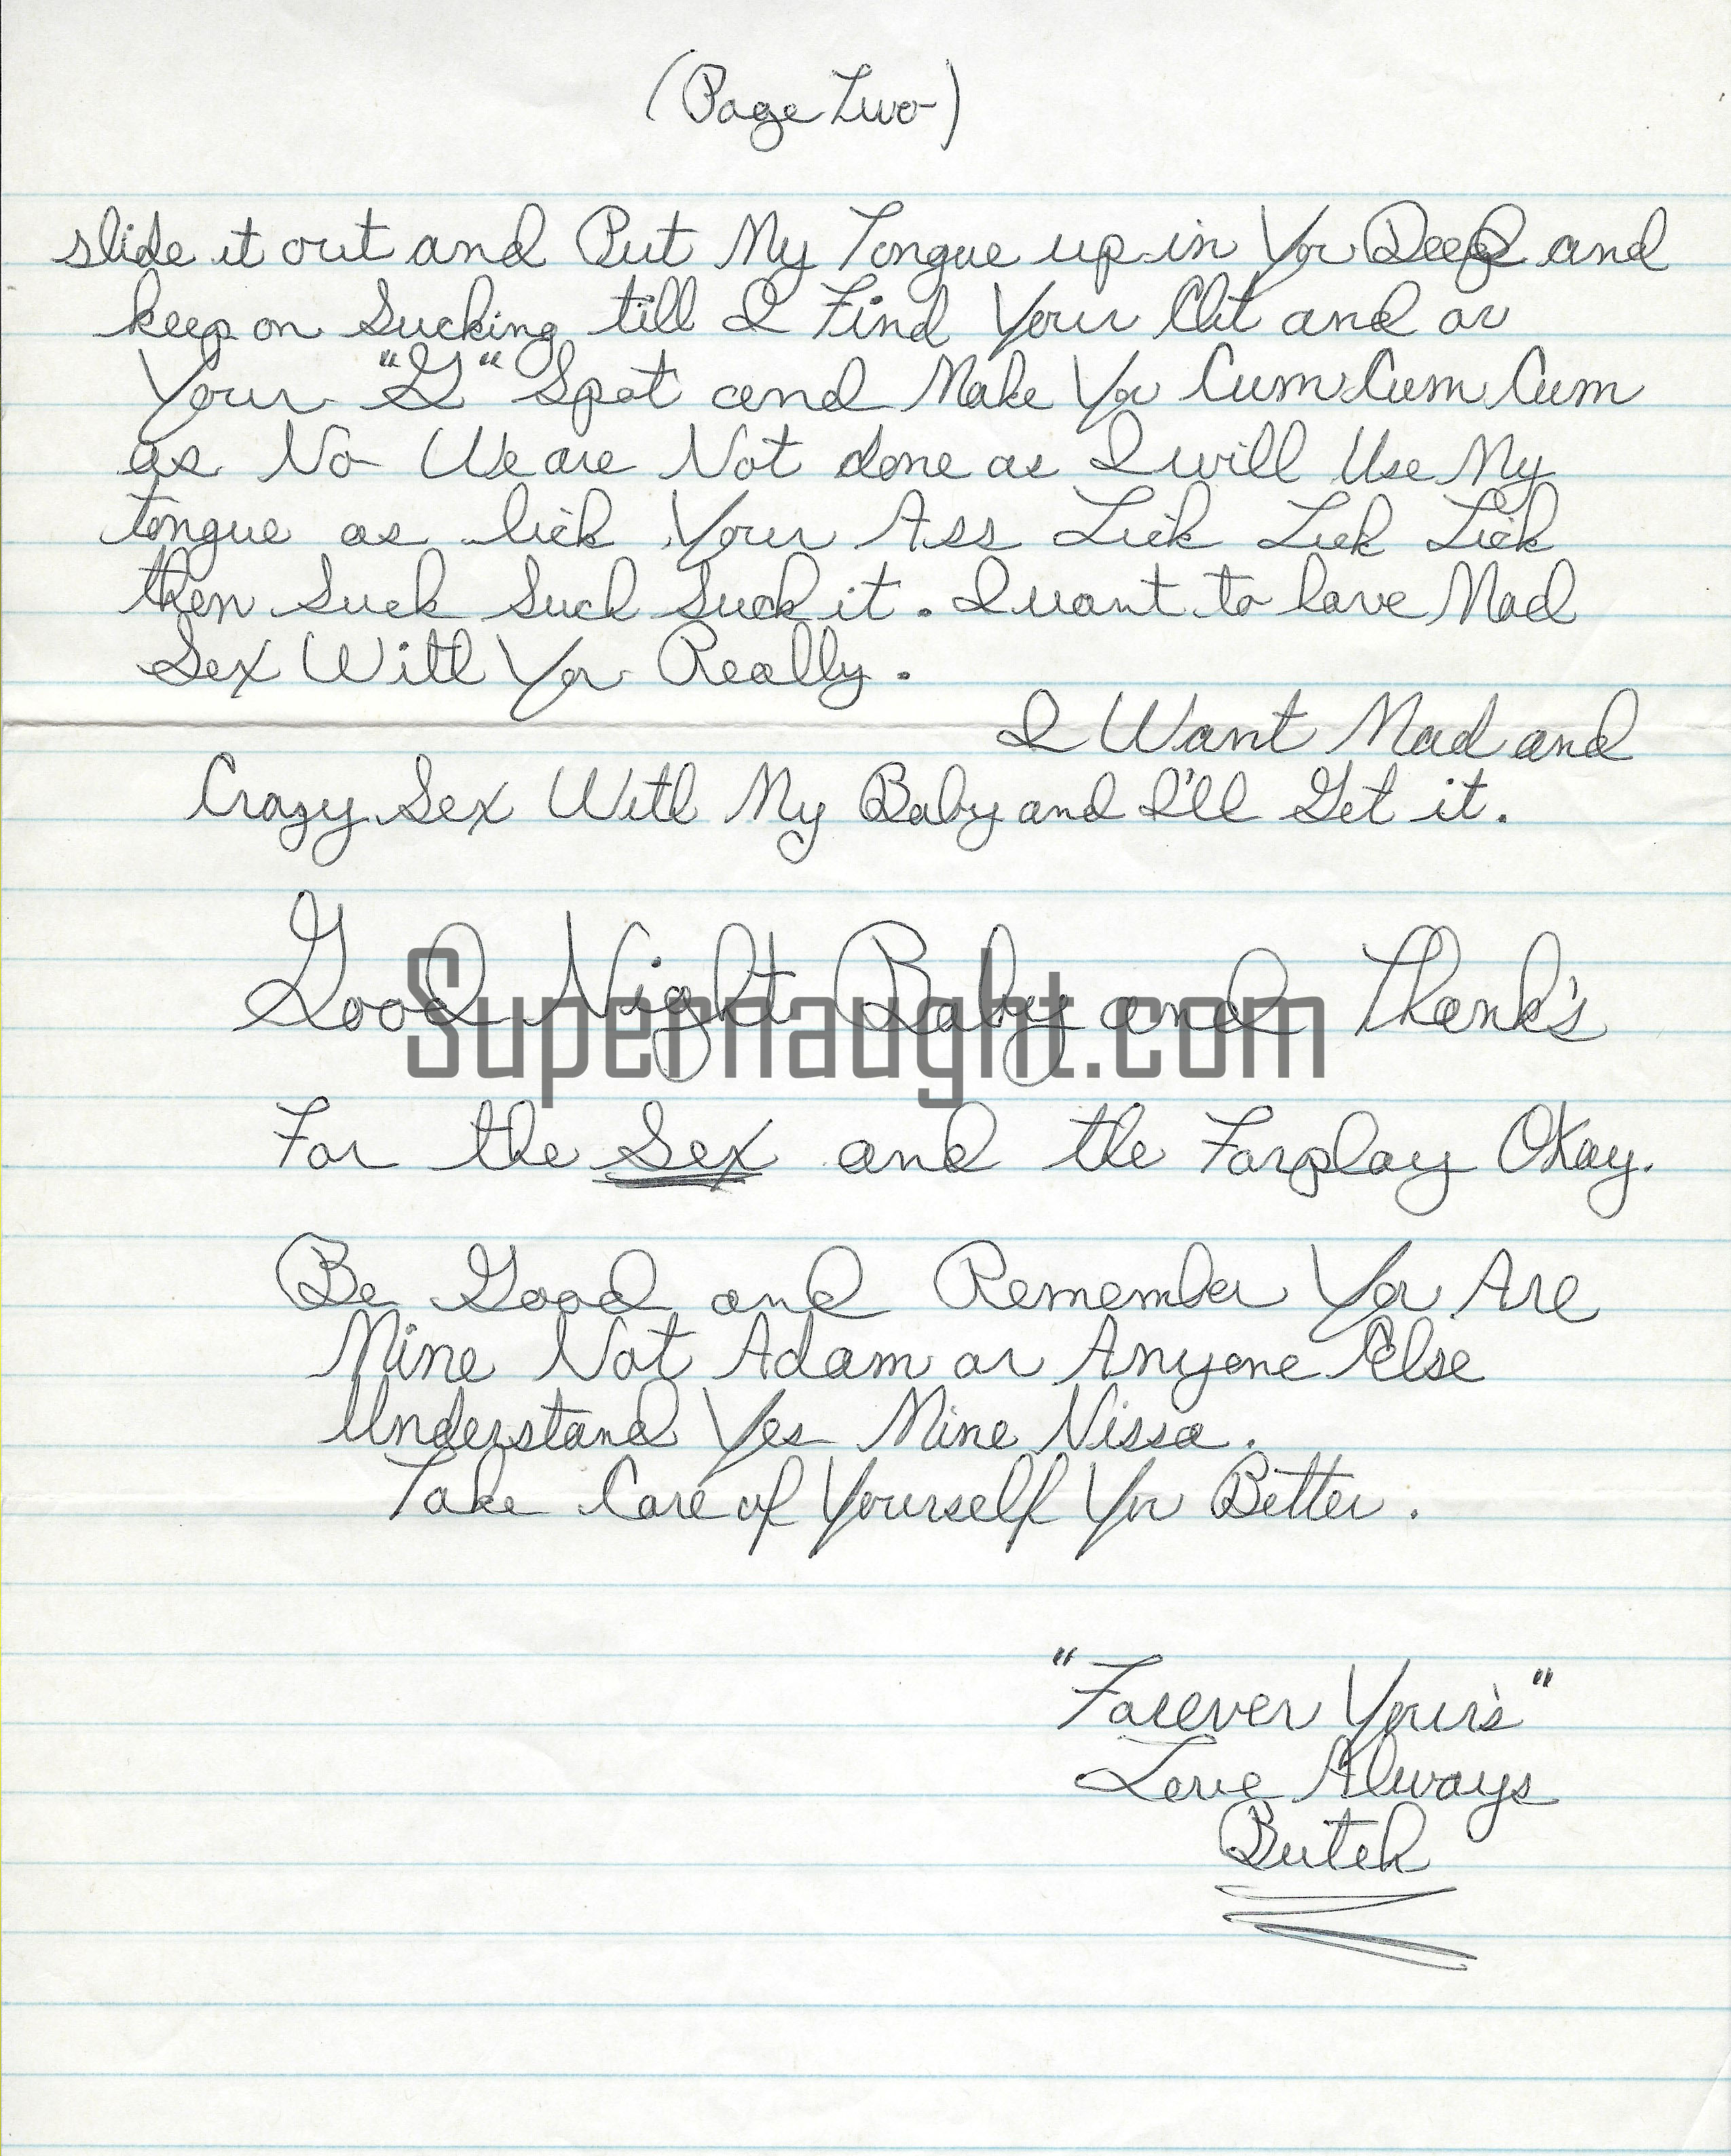 (Page Two)
slide it out and Put My Tongue up in You Deep and
keep on Sucking till I Find Your Clit and or
Your "G" Spot and Make You Cum Cum Cum
as No We are Not done as I will Use My
tongue as lick Your Ass Lick Lick Lick
then Suck Suck Suck it. I want to have Mad
Sex With You Really.
I Want Mad and
Crazy Sex With My Baby and I'll Get it.
Good Night Baby and Thank's
Supernaught.com
For the Sex and the Forplay Okay.
Be Good and Remember You Are
Mine Not Adam or Anyone Else
Understand Yes Mine Nissa.
Take Care of Yourself You Better.
"Forever Your's"
Love Always
Butch